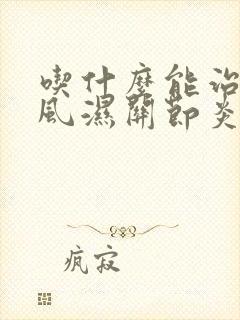 喫什麼能治
風濕關節炎
瘋寂